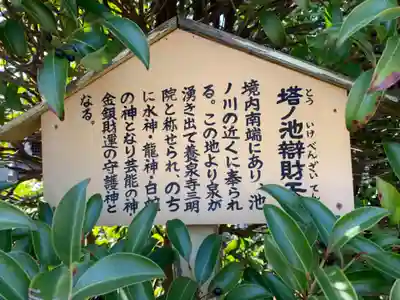 塔ノ池辯財天
とう いけべんざいてん
境内南端にあり、池
ノ川の近くに奉られ
る。この地より泉が
湧き出て養泉寺三明
院と称せられ、のち
に水神・龍神・白蛇
の神となり芸能の神
金銀財運の守護神と
なる。